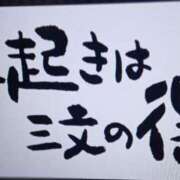 起きは
三文の